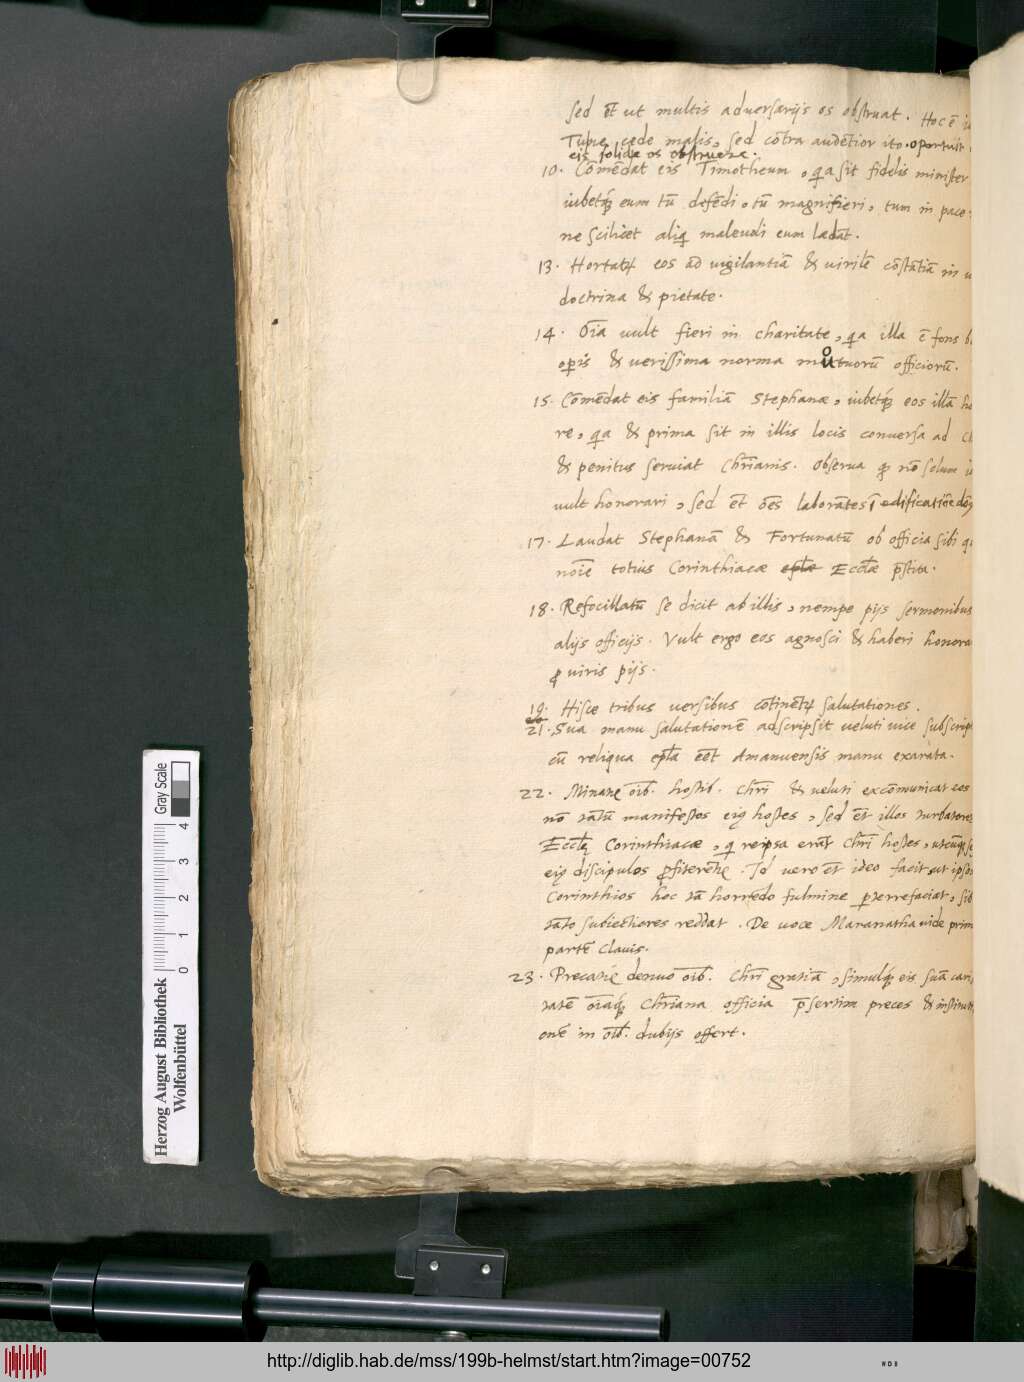 sed et̄ ut multis adversarijs os obstruat. Hoc ē
Tu ne cede malis, sed cōtra audētior ito. oportuit
eis solidæ os obstruere.
10. Cōmēdat eis Timotheum, q̄a sit fidelis minister
iubetq́ eum tū defēdi, tū magnifieri, tum in pace
ne scilicet aliq̄ malevoli eum lædāt.
13. Hortat᷒ eos ad vigilantiā & virilē cōstātiā in
doctrina & pietate.
14. Oīa vult fieri in charitate, q̄a illa ē fons
operis & verissima norma mutuorū officiorū.
15. Cōmēdat eis familiā Stephanæ, iubetq́ eos illā
re, q̄a & prima sit in illis locis conversa ad
& penitus serviat Chr̄ianis. Observa q̄ nō solum
vult honorari, sed et̄ oēs laborātes ī edificatiōe
17. Laudat Stephanā & Fortunatū ob officia sibi
noīe totius Corinthiacæ Eccl̄æ p̄stita.
18. Refocillatū se dicit ab illis, nempe pijs sermonibus
alijs officijs. Vult ergo eos agnosci & haberi
p̱ viris pijs.
19. Hisce tribus versibus cōtinēt᷒ salutationes.
21. Sua manu salutationē adscripsit veluti vice
cū reliqua epl̄a eēt Amanuensis manu exarata.
22. Minat᷒ oīb. hostib. Chr̄i & veluti excōmunicat eos
nō tātū manifestos eiꝰ hostes, sed et̄ illos turbatores
Eccl̄ę Corinthiacæ, q̄ reipsa erāt Chr̄i hostes, utcūq̄
eiꝰ discipulos p̱fiterēt᷒. Id vero et̄ ideo facit ut ipsos
Corinthios hoc tā horrēdo fulmine p̱terrefaciat,
tāto subiectiores reddat. De voce Maranatha vide
partē Clavis.
23. Precat᷒ denuo oīb. Chr̄i gratiā, simulq́ eis suā
tatē oīaq́ Chr̄iana officia p̄sertim preces &
onē in oīb. dubijs offert.
Herzog August Bibliothek
Wolfenbüttel
Gray Scale
0 1 2 3 4
http://diglib.hab.de/mss/199b-helmst/start.htm?image=00752
WDB